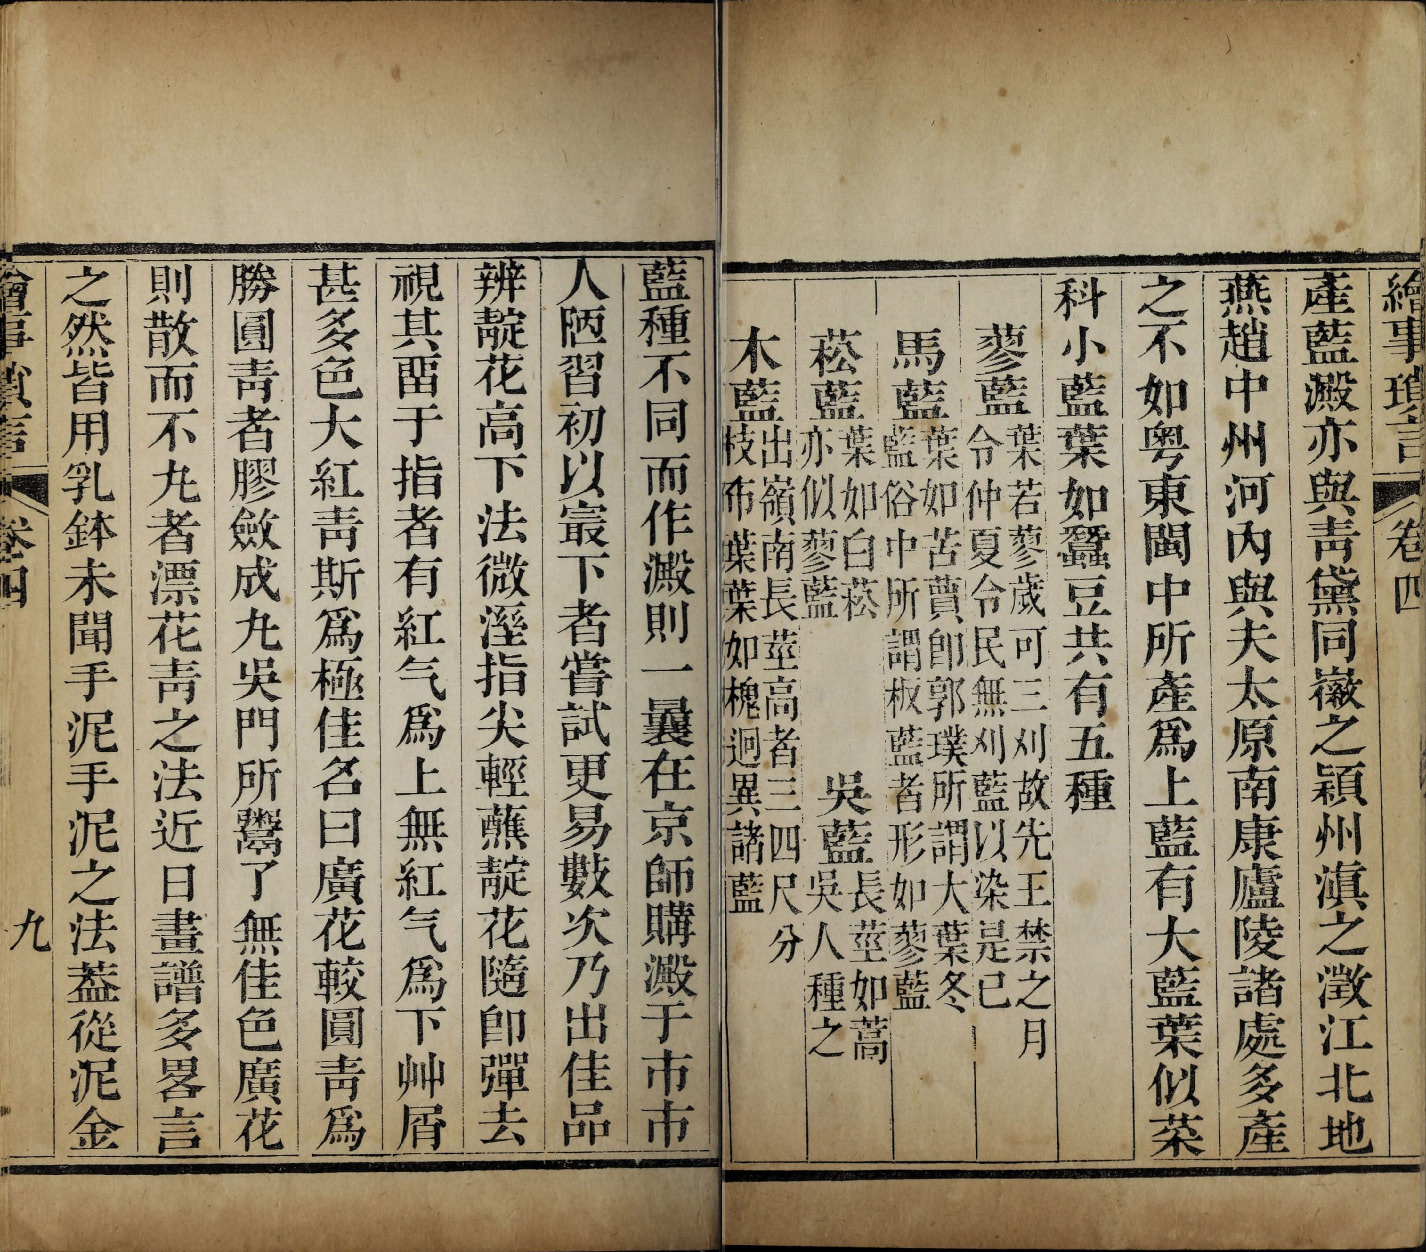 繪事瑣言 卷四
產藍澱亦與靑黛同嶶之潁州滇之澂江北地
燕趙中州河內與夫太原南康廬陵諸處多產
之不如粤東閩中所產爲上藍有大藍葉似菜
科小藍葉如蠶豆共有五種
蓼藍葉若蓼歲可三刈故先王禁之月
令仲夏令民無刈藍以染是已
馬藍葉如苦蕒卽郭璞所謂大葉冬
藍俗中所謂板藍者形如蓼藍
菘藍葉如白菘
亦似蓼藍
吳藍長莖如蒿
吳人種之
木藍出嶺南長莖高者三四尺分
枝布葉葉如槐迥異諸藍
藍種不同而作澱則一曩在京師購澱于市市
人陋習初以㝡下者嘗試更易數次乃出佳品
辨靛花高下法微溼指尖輕蘸靛花隨卽彈去
視其畱于指者有紅气爲上無紅气爲下艸屑
甚多色大紅靑斯爲極佳名曰廣花較圓靑爲
勝圓靑者膠斂成九吳門所鬻了無佳色廣花
則散而不九者漂花靑之法近日畫譜多畧言
之然皆用乳鉢未聞手泥手泥之法葢從泥金
繪事瑣言 卷四 九